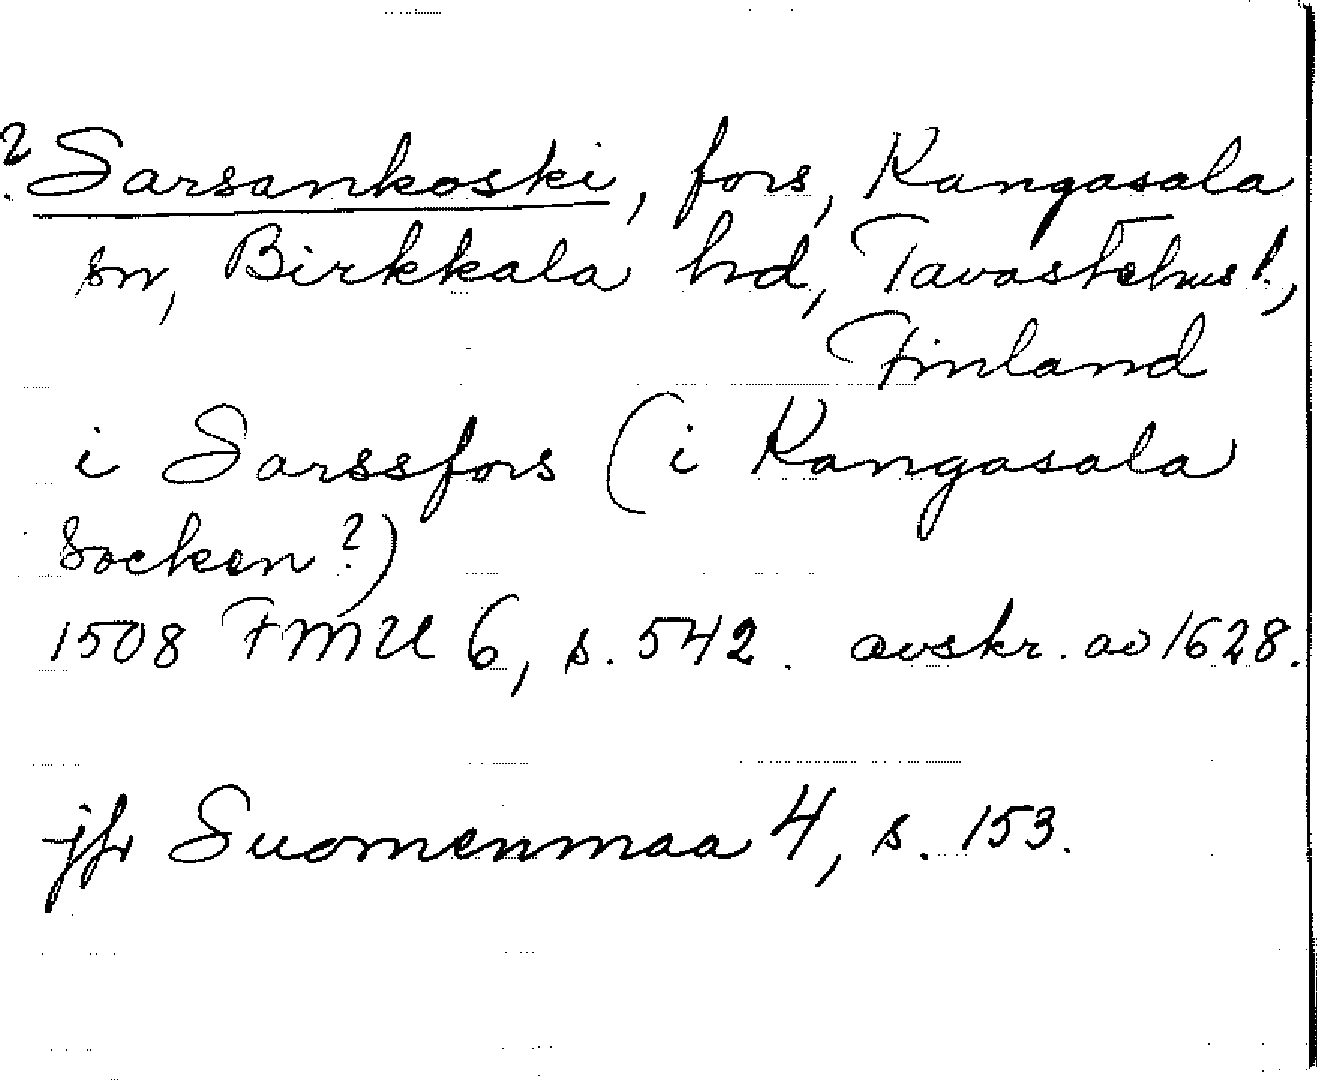 ? Sarsankoski, fors, Kangasala
sn, Birkkala hd, Tavastehus l.,
Finland
i Sarssfors (i Kangasala
Socken?)
1508 FMU 6, s. 542. avskr. av 1628.
jfr Suomenmaa 4, s. 153.